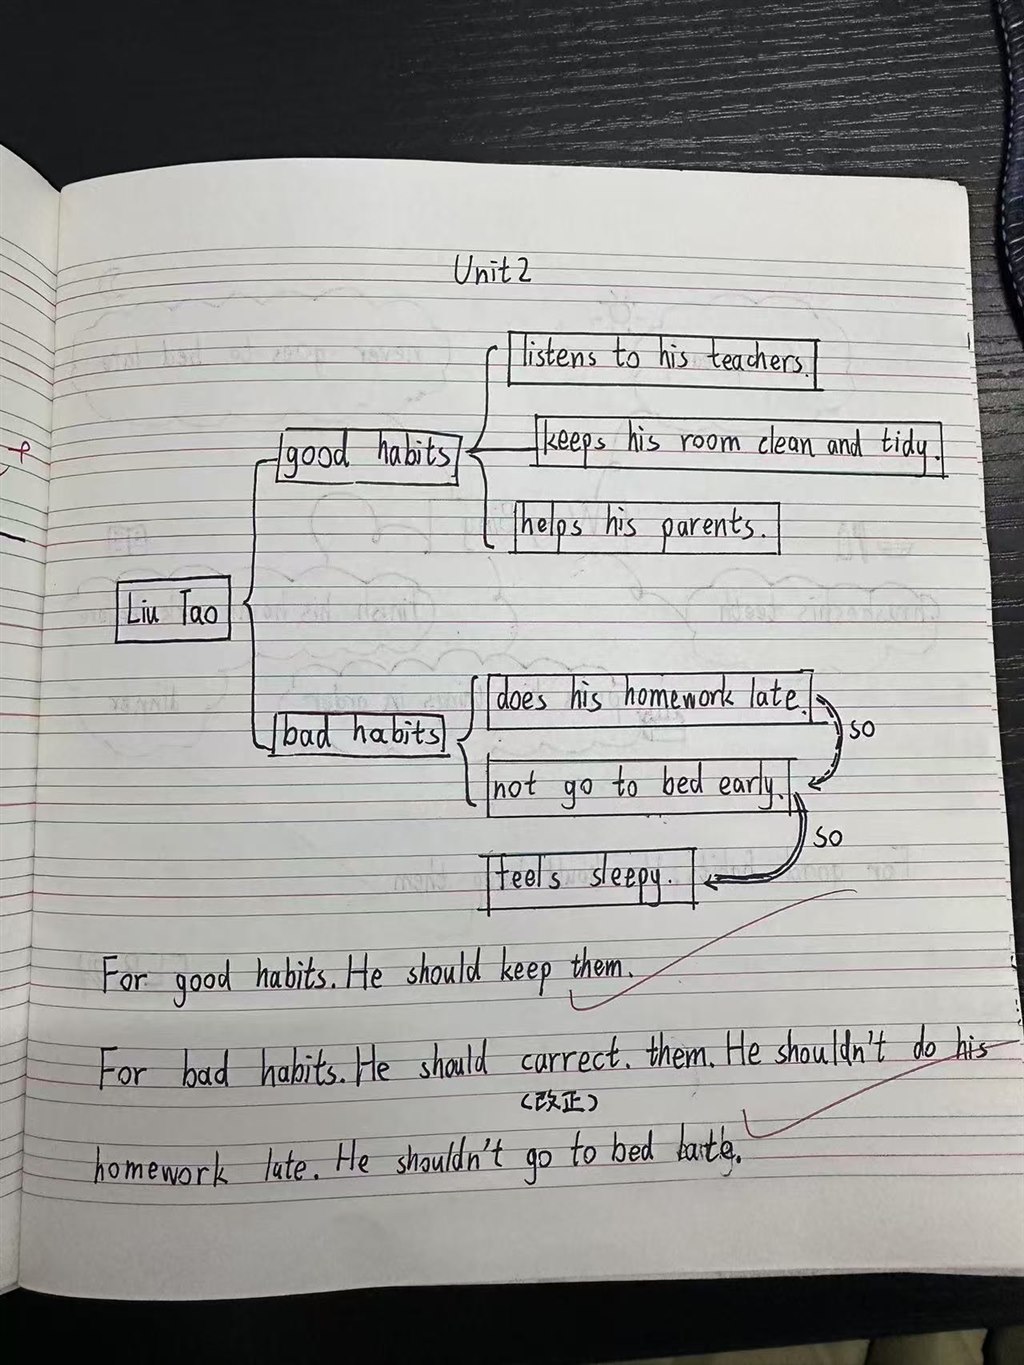 Unit 2
listens to his teachers.
good habits
keeps his room clean and tidy.
helps his parents.
Liu Tao
does his homework late.
so
bad habits
not go to bed early.
so
feels sleepy.
For good habits. He should keep them.
For bad habits. He should carrect. them. He shouldn't do his
(改正)
homework late. He shouldn't go to bed late.